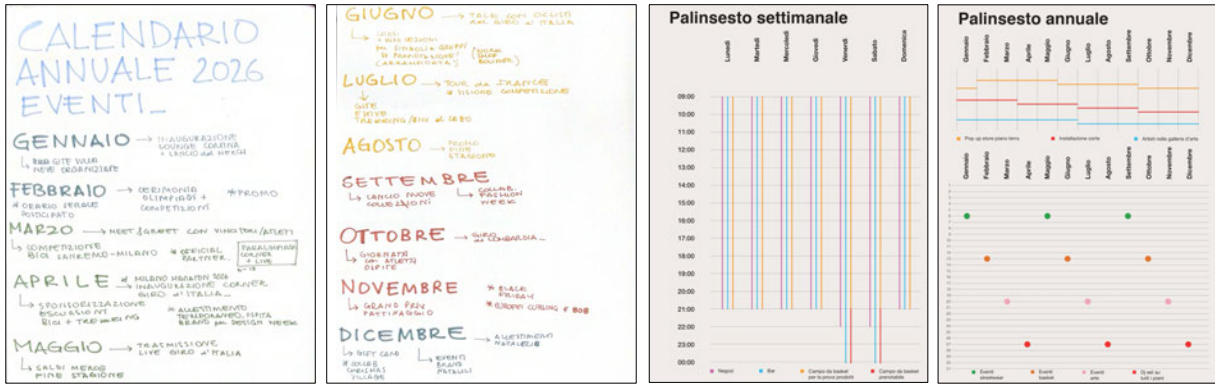 CALENDARIO
ANNUALE 2026
EVENTI_
GENNAIO → INAUGURAZIONE
LOUNGE CORTINA
+ LANCIO del MERCH
GITE SULLA
NEVE ORGANIZZATE
FEBBRAIO → CERIMONIA
OLIMPIADI +
COMPETIZIONI
*PROMO
* ORARIO SERALE
POSTICIPATO
MARZO → MEET & GREET CON VINCITORI/ATLETI
↳ COMPETIZIONE
BICI SANREMO-MILANO
* OFFICIAL
PARTNER
PARALIMPIADI
CORNER
+ LIVE
6-15
APRILE * MILANO MARATON 2026
→ INAUGURAZIONE CORNER
GIRO d'ITALIA_
↳ SPONSORIZZAZIONE
ESCURSIONI
BICI + TREKKING
* ALLESTIMENTO
TEMPORANEO, OSPITA
BRAND per DESIGN WEEK
MAGGIO → TRASMISSIONE
LIVE GIRO d'ITALIA
↳ SALDI MERCE
FINE STAGIONE
GIUGNO → TALK CON CICLISTI
DEL GIRO d'ITALIA
LUGLIO → TOUR de FRANCE
* VISIONE COMPETIZIONE
GITE
ESTIVE
TREKKING/BICI al LAGO
AGOSTO → PROMO
FINE
STAGIONE
SETTEMBRE
↳ LANCIO NUOVE
COLLEZIONI
↳ COLLAB.
FASHION
WEEK
OTTOBRE → GIRO
di LOMBARDIA_
↳ GIORNATA
con ATLETA
OSPITE
NOVEMBRE
* BLACK
FRIDAY
↳ GRAND PRIX
PATTINAGGIO
* EUROPEI CURLING + BOB
DICEMBRE → ALLESTIMENTI
NATALIZIE
↳ GIFT CARD
* COLLAB
CHRISTMAS
VILLAGE
↳ EVENTI
BRAND
NATALIZI
Palinsesto settimanale
Lunedì Martedì Mercoledì Giovedì Venerdì Sabato Domenica
09:00
10:00
11:00
12:00
13:00
14:00
15:00
16:00
17:00
18:00
19:00
20:00
21:00
22:00
23:00
00:00
Negozi Bar Campo da basket
per la prova prodotti
Campo da basket
prenotabile
Palinsesto annuale
Gennaio Febbraio Marzo Aprile Maggio Giugno Luglio Agosto Settembre Ottobre Novembre Dicembre
Pop up store piano terra Installazione corte Artisti nella galleria d'arte
Gennaio Febbraio Marzo Aprile Maggio Giugno Luglio Agosto Settembre Ottobre Novembre Dicembre
Eventi
streetwear
Eventi
basket
Eventi
arte
Dj set su
tutti i piani